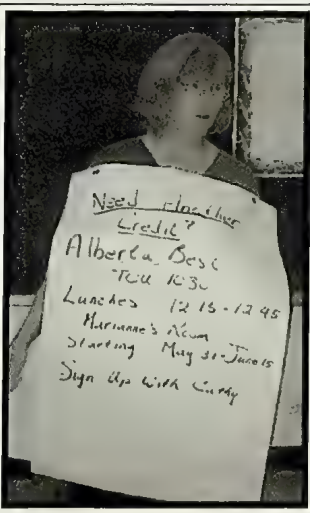 Need Another
Credit?
Alberta Best
Lunches 12 15 - 12 45
Marianne's Room
Starting May 31 - June 15
Sign Up With Cathy